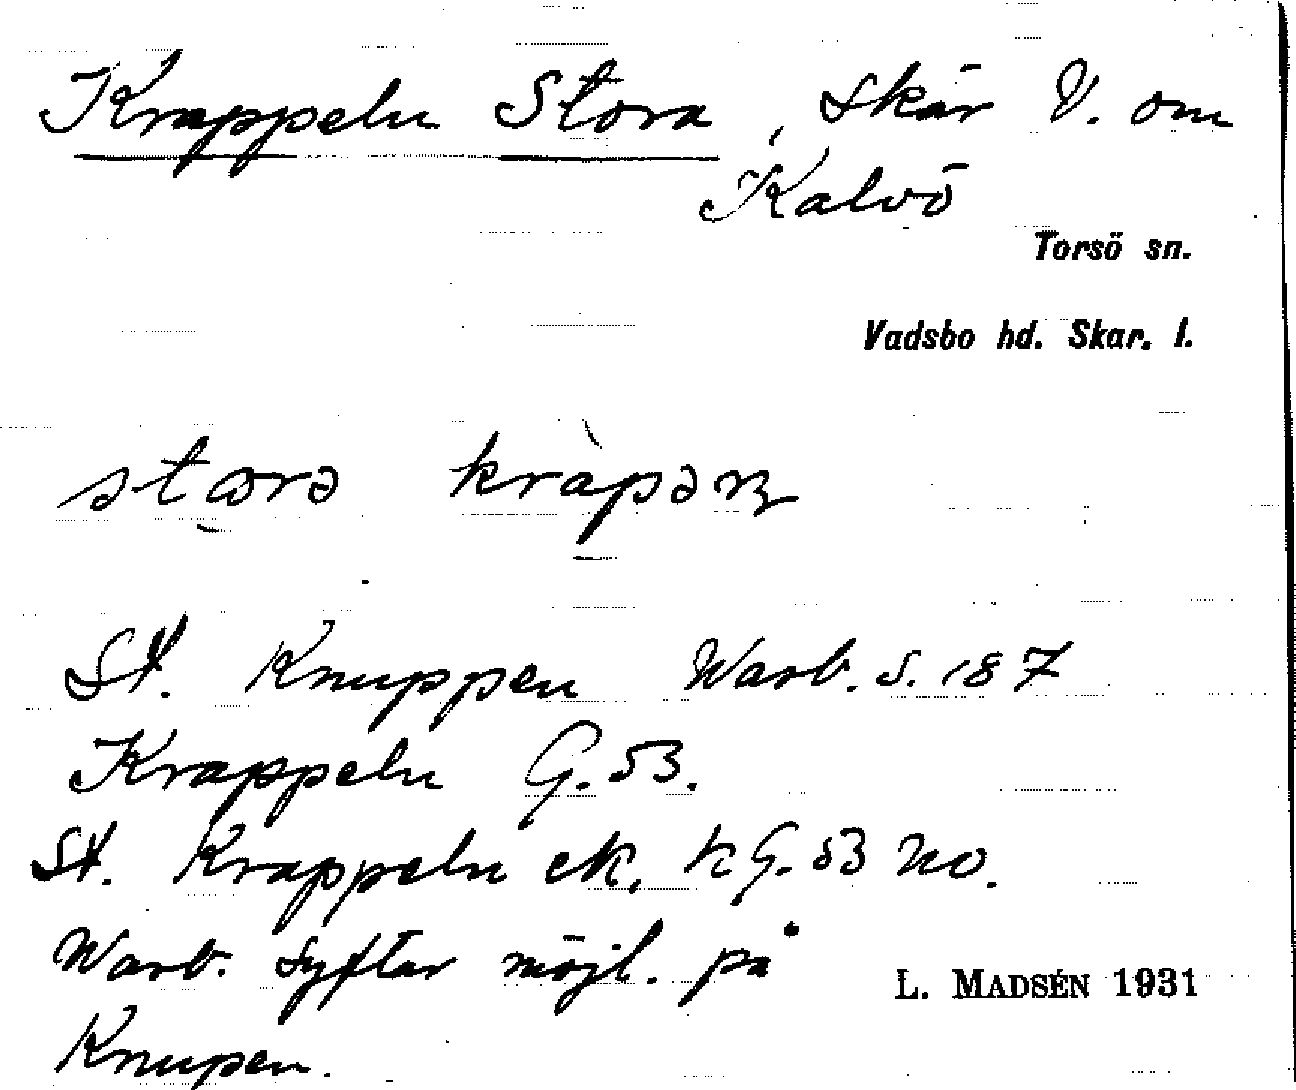 Krappeln Stora, skär V. om
Kalvö
Torsö sn.
Vadsbo hd. Skar. l.
St. Knuppen Warb. S. 187
Krappeln G. 53.
St. Krappeln ek. kG. 53 NO.
Warb. syftar möjl. på
L. MADSÉN 1931
Knupen.